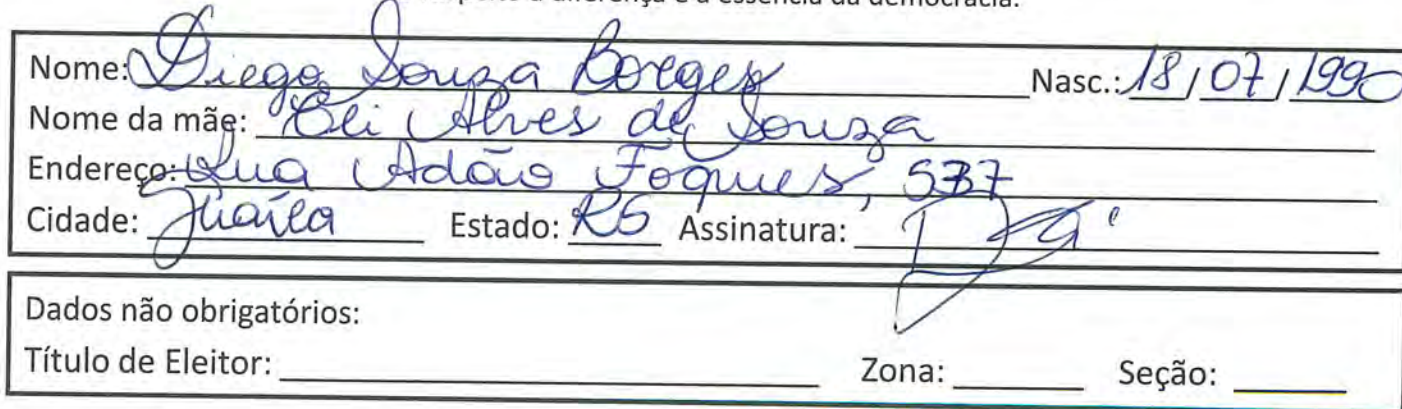 a diferença é a essência da democracia.
Nome: Diego Souza Borges Nasc.: 18/07/1990
Nome da mãe: Eli Alves de Souza
Endereço: Rua Adão Foques, 537
Cidade: Estado: RS Assinatura:
Dados não obrigatórios:
Título de Eleitor: Zona: Seção: